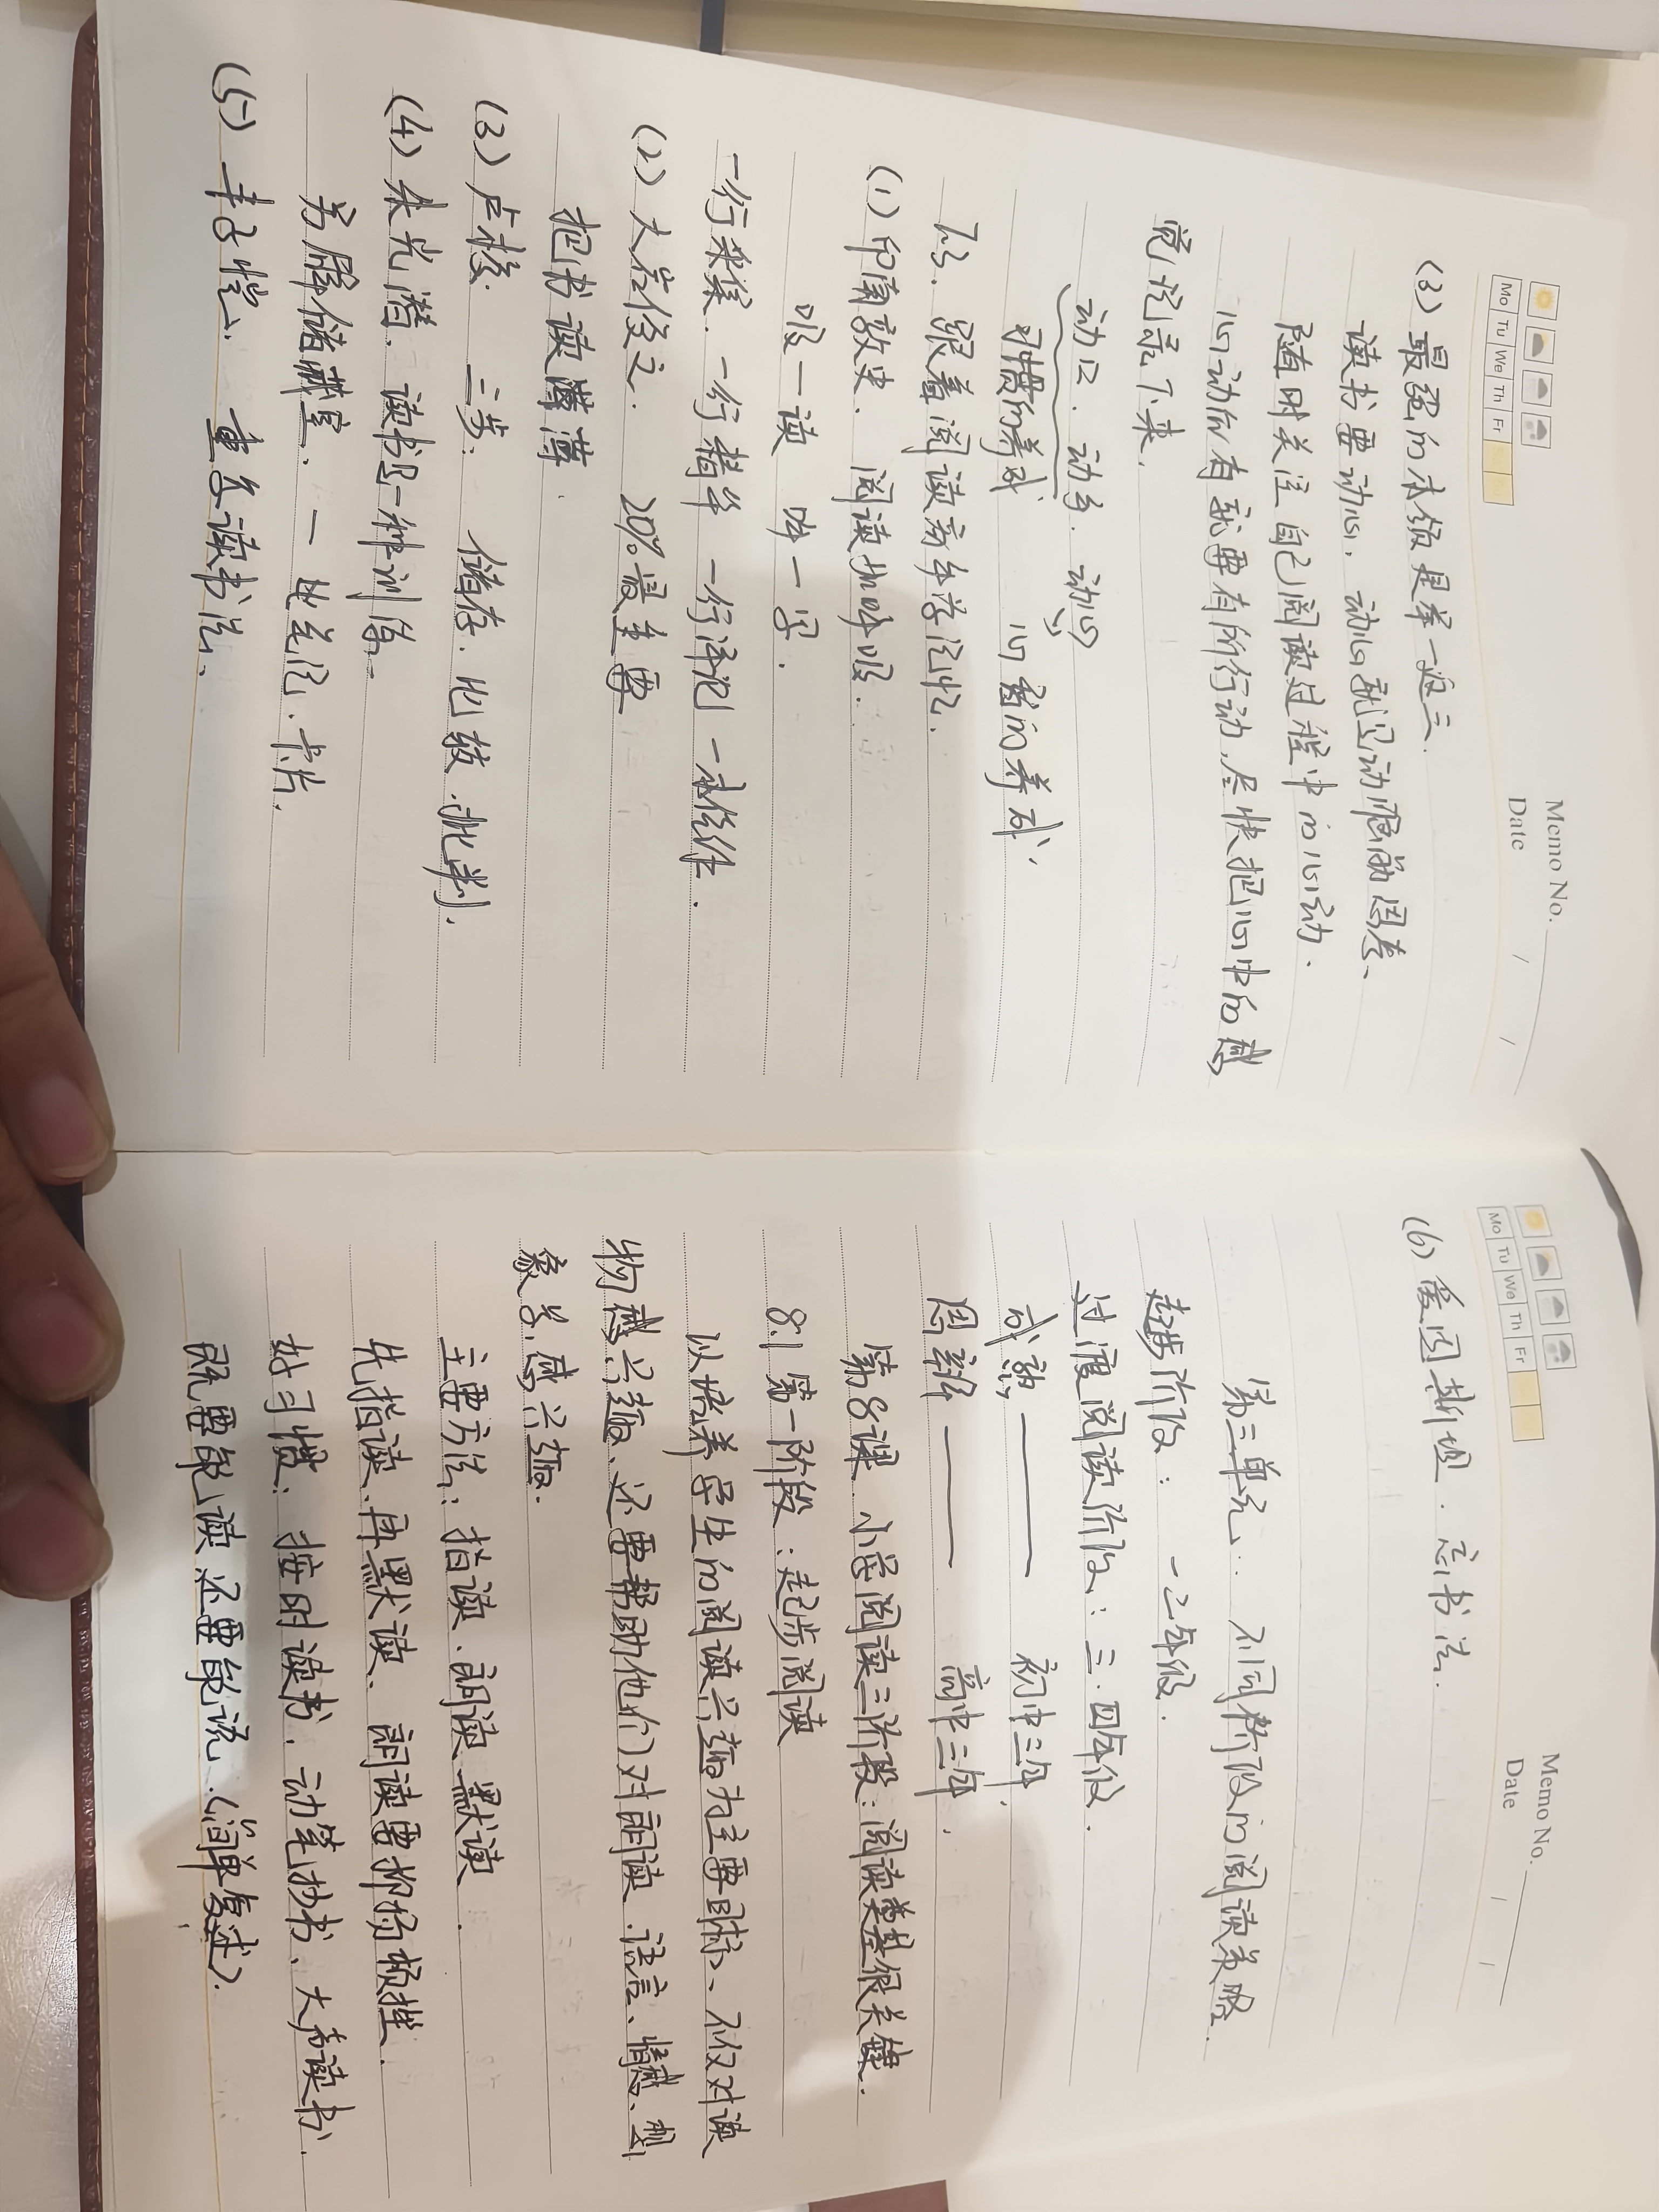 Memo No.
Date / /
Mo Tu We Th Fr
(3) 最强的本领是举一返三.
读书要动心、动心就是动脑筋思考、
随时关注自己阅读过程中的心动.
心动后有就要有所行动,尽快把心中的感
觉记录下来.
动口、动手、动心
习惯的养成 心智的养成.
7.3、跟着阅读高手学记忆.
(1) 印南敦史、阅读如呼吸.
吸一读 呼一写.
一行采集、一行精华 一行评论 一本佳作.
(2) 大岩俊之. 20%最重要
把书读薄.
(3) 卢梭. 三步: 储存、比较、批判.
(4) 朱光潜、读书是一种训练.
另属储藏室、一 比笔记、卡片.
(5) 丰子恺、 重复读书法、
Memo No.
Date / /
Mo Tu We Th Fr
(6) 爱因斯坦. 忘书法.
第三单元: 不同阶段的阅读策略.
起步阶段: 一二年级.
过渡阅读阶段: 三.四年级.
成熟 —— 初中三年.
思辨 —— 高中三年.
第8课. 小学阅读三阶段: 阅读奠基很关键.
8.1 第一阶段: 起步阅读
以培养学生的阅读兴趣为主要目标、不仅对读
物感兴趣、还要帮助他们对朗读、语言、情感、形
象等.感兴趣.
主要方法: 指读、朗读、默读.
先指读、再默读、朗读要抑扬顿挫.
好习惯: 按时读书、动笔抄书、大声读书.
既要能读 还要能说.(简单复述).